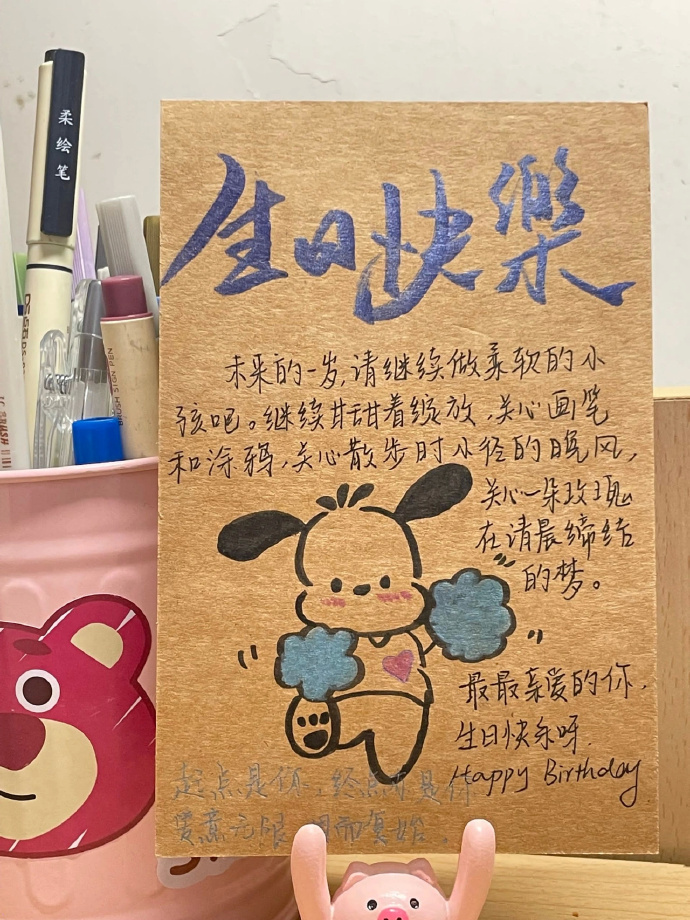 柔绘笔
生日快樂
未来的一岁,请继续做柔软的小
孩吧。继续甘甜着绽放,关心画笔
和涂鸦,关心散步时小径的晚风,
关心一朵玫瑰
在清晨缔结
的梦。
最最亲爱的你,
生日快乐呀.
Happy Birthday
起点是你,终点亦是你
爱意无限,周而复始.